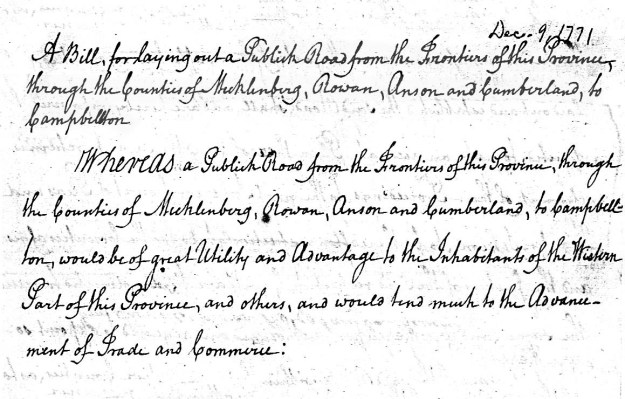 Dec. 9, 1771
A Bill, for laying out a Publick Road from the Frontiers of this Province,
through the Counties of Mecklenberg, Rowan, Anson and Cumberland, to
Campbellton
Whereas a Publick Road from the Frontiers of this Province, through
the Counties of Mecklenberg, Rowan, Anson and Cumberland, to Campbell-
ton, would be of great Utility and Advantage to the Inhabitants of the Western
Part of this Province, and others, and would tend much to the Advance-
ment of Trade and Commerce: